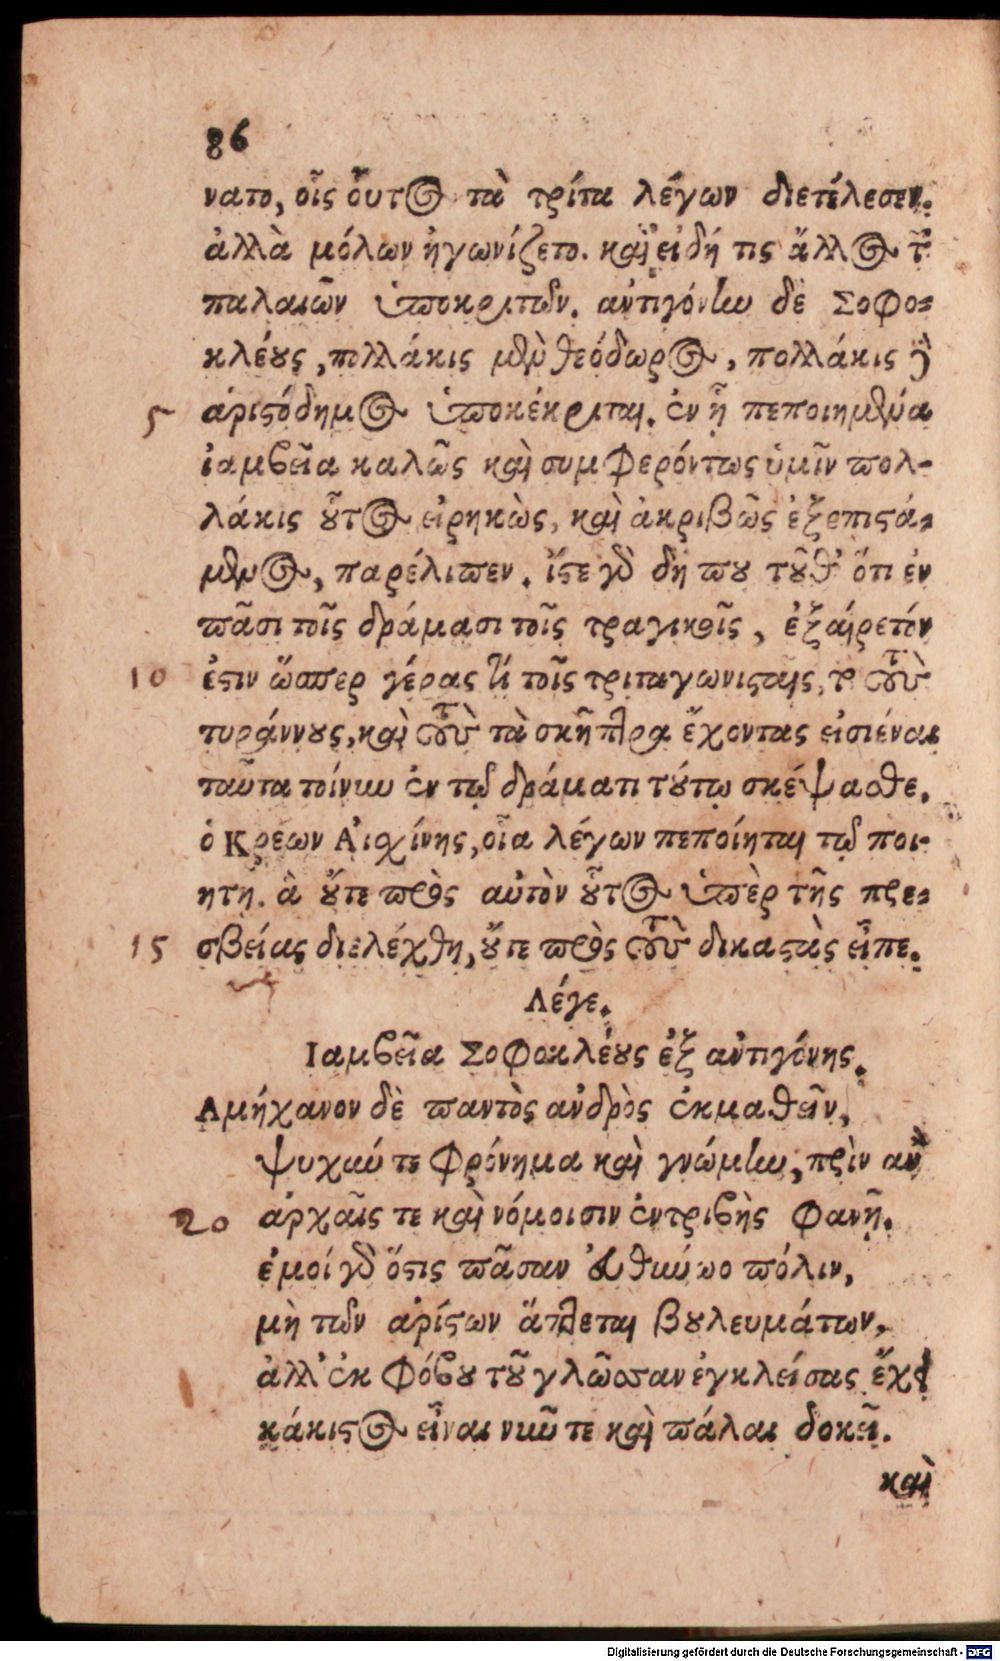 86
νατο, οἷς οὗτος τὰ τρίτα λέγων διετέλεσεν.
ἀλλὰ μόλων ἠγωνίζετο. καὶ εἰ δή τις ἄλλος τ῀
παλαιῶν ὑποκριτῶν. ἀντιγόνην δὲ Σοφο-
κλέους, πολλάκις μὲν θεόδωρος, πολλάκις δὲ
5 ἀριστόδημος ὑποκέκριται. ἐν ᾗ πεποιημένα
ἰαμβεῖα καλῶς καὶ συμφερόντως ὑμῖν πολ-
λάκις οὗτος εἰρηκὼς, καὶ ἀκριβῶς ἐξεπιστά-
μενος, παρέλιπεν. ἴστε γὰρ δή που τοῦθ' ὅτι ἐν
πᾶσι τοῖς δράμασι τοῖς τραγικοῖς, ἐξαίρετόν
10 ἐστιν ὥσπερ γέρας τι τοῖς τριταγωνισταῖς, τ τοὺς
τυράννους, καὶ τοὺς τὰ σκῆπτρα ἔχοντας εἰσιέναι
ταῦτα τοίνυν ἐν τῷ δράματι τούτῳ σκέψασθε.
ὁ Κρέων Αἰσχίνης, οἷα λέγων πεποίηται τῷ ποι-
ητῇ. ἃ οὔτε πρὸς αὑτὸν οὗτος ὑπὲρ τῆς πρε-
15 σβείας διελέχθη, οὔτε πρὸς τοὺς δικαστὰς εἶπε.
Λέγε.
Ιαμβεῖα Σοφοκλέους ἐξ ἀντιγόνης.
Αμήχανον δὲ παντὸς ἀνδρὸς ἐκμαθεῖν,
ψυχήν τε φρόνημα καὶ γνώμην, πρὶν ἂν
20 ἀρχαῖς τε καὶ νόμοισιν ἐντριβὴς φανῇ.
ἐμοί γὰρ ὅστις πᾶσαν εὐθύνων πόλιν,
μὴ τῶν ἀρίστων ἅπτεται βουλευμάτων,
ἀλλ' ἐκ φόβου τοῦ γλῶσσαν ἐγκλείσας ἔχει
κάκιστος εἶναι νῦν τε καὶ πάλαι δοκεῖ.
καὶ
Digitalisierung gefördert durch die Deutsche Forschungsgemeinschaft - DFG